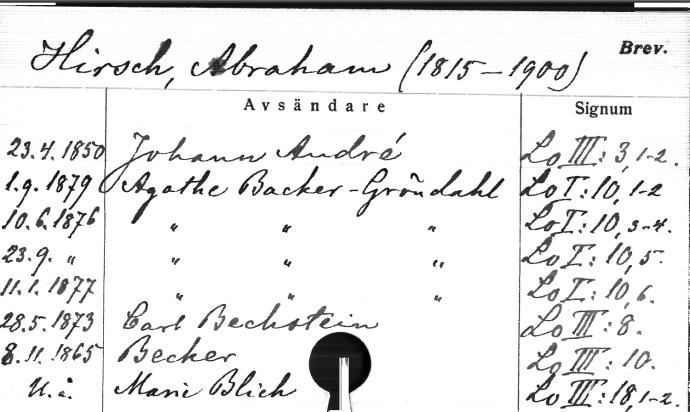 Hirsch, Abraham (1815-1900) Brev.
Avsändare Signum
23.4.1850 Johann André Lo III: 3, 1-2.
1.9.1879 Agathe Backer-Gröndahl Lo I: 10, 1-2
10.6.1876 " " " Lo I: 10, 3-4.
23.9. " " " " Lo I: 10, 5.
11.1.1877 " " " Lo I: 10, 6.
28.5.1873 Carl Bechstein Lo III: 8.
8.11.1865 Becker Lo III: 10.
U.å. Marie Blich Lo III: 18, 1-2.